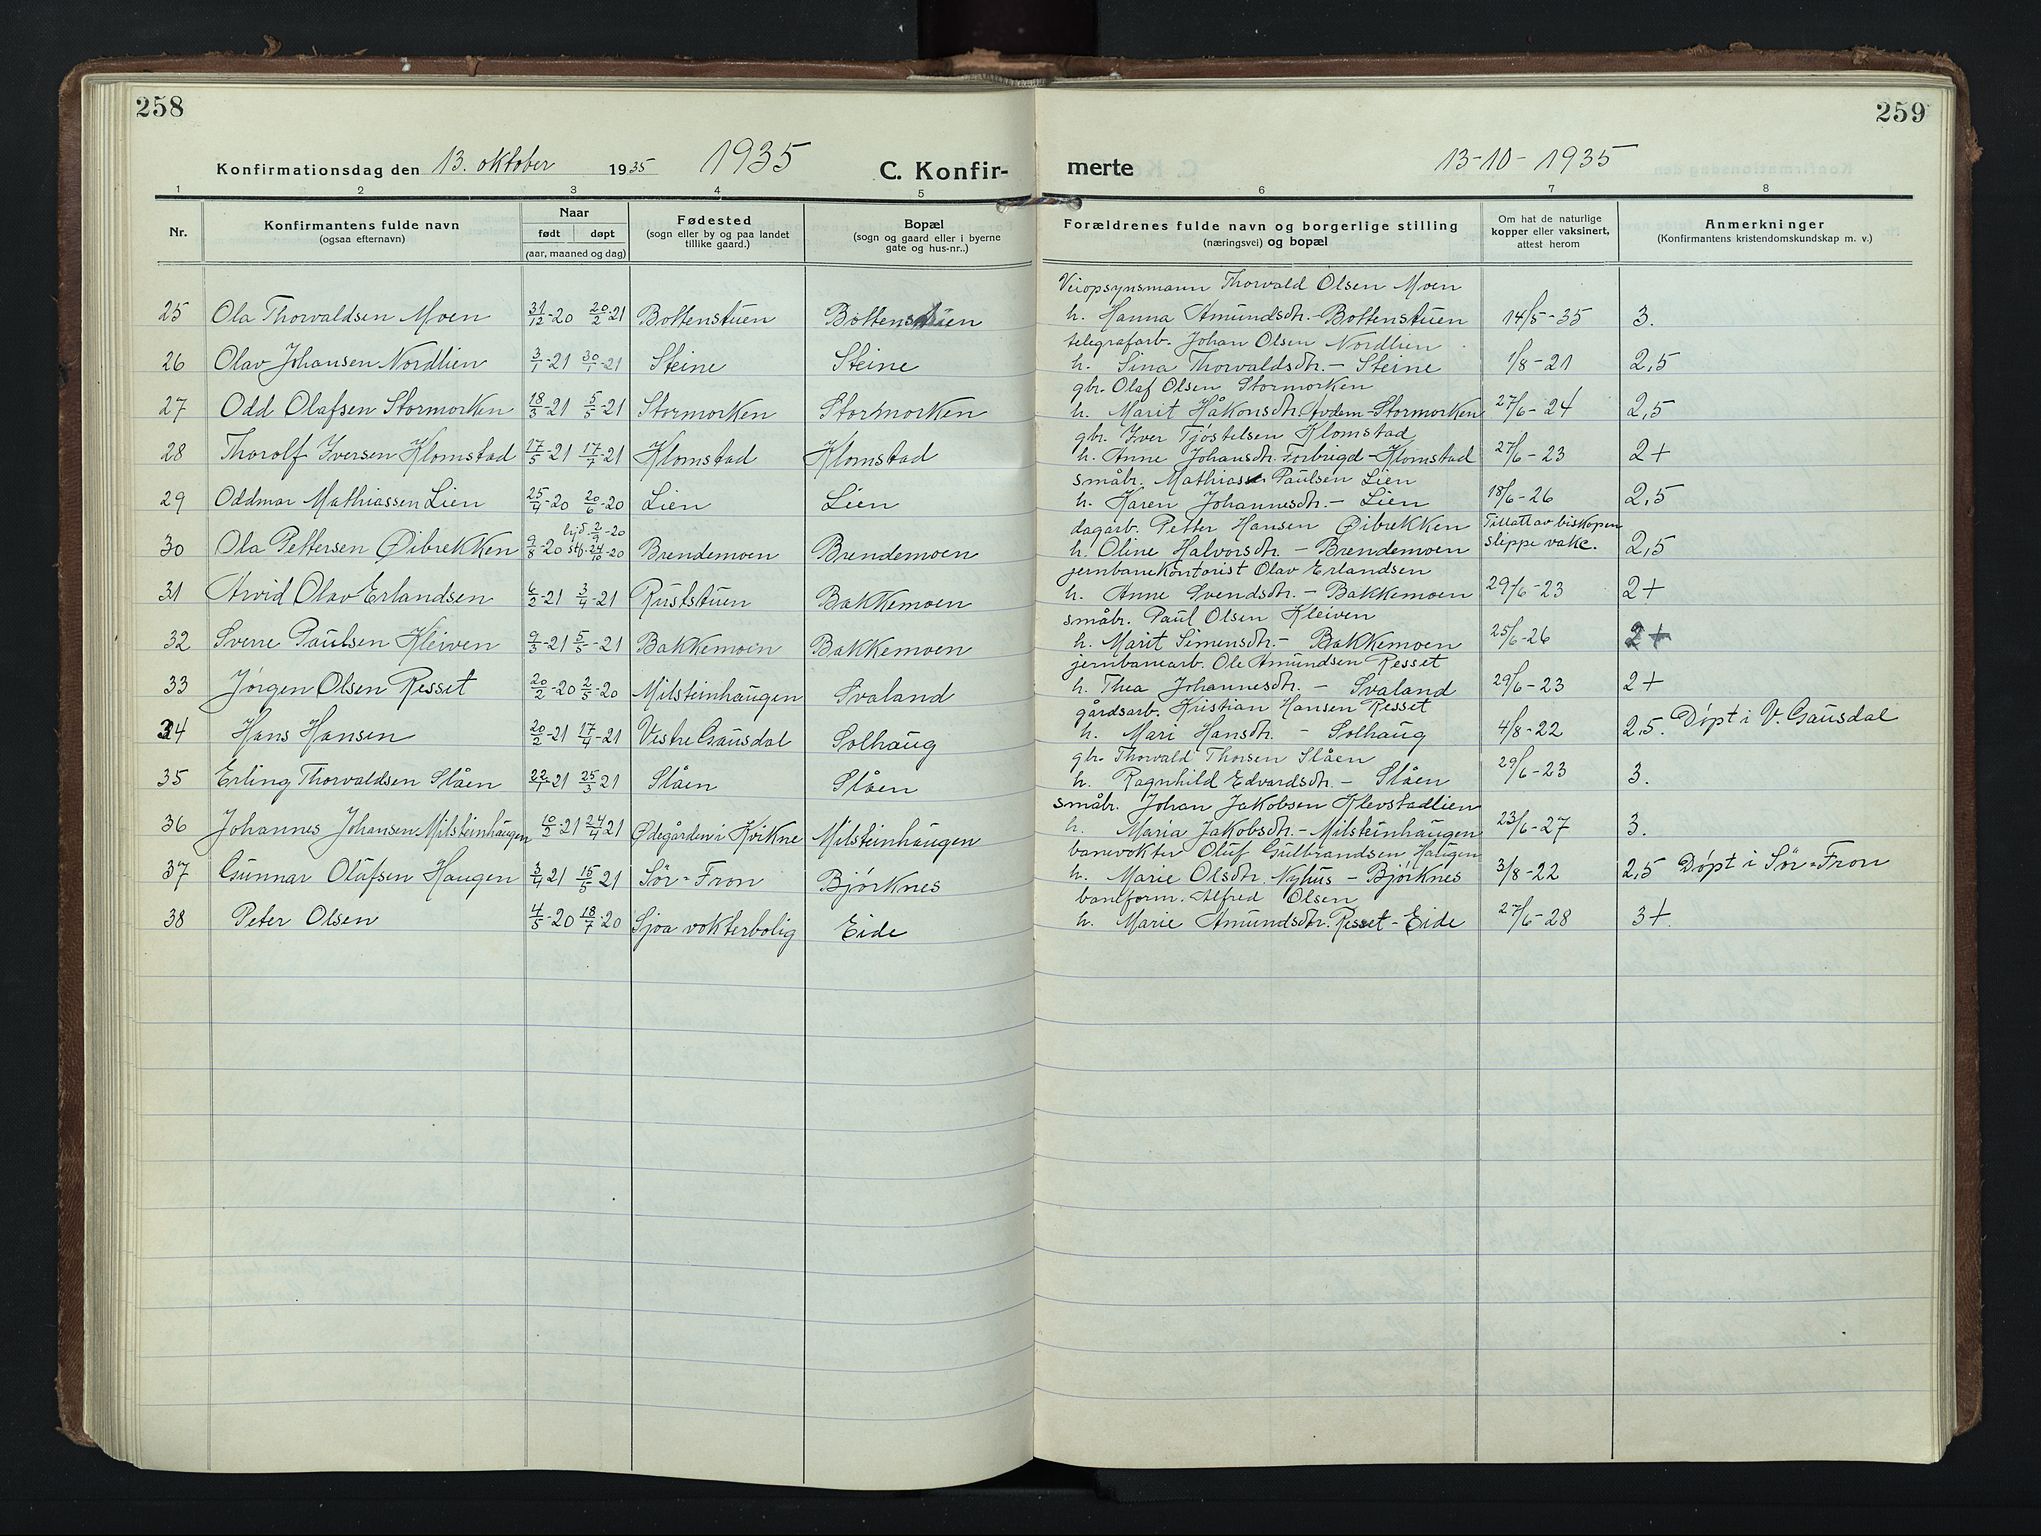 258
Konfirmationsdag den 13. oktober 1935 1935 C. Konfir-
1 2 3 4 5
Nr. Konfirmantens fulde navn (ogsaa efternavn) Naar født døpt (aar, maaned og dag) Fødested (sogn eller by og paa landet tillike gaard.) Bopæl (sogn og gaard eller i byerne gate og hus-nr..)
25 Ola Thorvaldsen Moen 31/12-20 20/2-21 Bottenstuen Bottenstuen
26 Olav Johansen Nordlien 3/1-21 30/1-21 Steine Steine
27 Odd Olafsen Stormorken 18/3-21 5/5-21 Stormorken Stormorken
28 Thorolf Iversen Klomstad 17/5-21 17/7-21 Klomstad Klomstad
29 Oddmar Mathiassen Lien 25/4-20 20/6-20 Lien Lien
30 Ola Pettersen Øibrekken 9/8-20 hjd 2/9-20 stf. 24/10-20 Brendemoen Brendemoen
31 Arvid Olav Erlandsen 6/2-21 3/4-21 Ruststuen Bakkemoen
32 Sverre Paulsen Kleiven 9/3-21 5/5-21 Bakkemoen Bakkemoen
33 Jørgen Olsen Resset 20/2-20 2/5-20 Milsteinhaugen Svaland
34 Hans Hansen 20/2-21 17/4-21 Vestre Gausdal Solhaug
35 Erling Thorvaldsen Slåen 22/1-21 25/3-21 Slåen Slåen
36 Johannes Johansen Milsteinhaugen 10/2-21 24/4 21 Ødegården i Kvikne Milsteinhaugen
37 Gunnar Olafsen Haugen 3/4 21 15/5-21 Sør-Fron Bjørknes
38 Peter Olsen 4/5-20 18/7-20 Sjoa vokterbolig Eide
259
merte 13-10-1935
6 7 8
Forældrenes fulde navn og borgerlige stilling (næringsvei) og bopæl Om hat de naturlige kopper eller vaksinert, attest herom Anmerkninger (Konfirmantens kristendomskundskap m. v.)
Veiopsynsmann Thorvald Olsen Moen
h. Hanna Amundsdtr.-Bottenstuen 14/5-35 3.
telegrafarb. Johan Olsen Nordlien
h. Sina Thorvaldsdtr.- Steine 1/8-21 2,5
gbr. Olaf Olsen Stormorken
h. Marit Håkonsdtr. Avdem-Stormorken 27/6-24 2,5
gbr. Iver Tjøstelsen Klomstad
h. Anne Johansdtr. Forbrigd-Klomstad 27/6-23 2+
småbr. Mathias Paulsen Lien
h. Karen Johannesdtr.- Lien 18/6-26 2,5
dagarb. Petter Hansen Øibrekken Tillatt av biskopen
h. Oline Halvorsdtr. - Brendemoen slippe vakc. 2,5
jernbanekontorist Olav Erlandsen
h. Anne Svendsdtr.- Bakkemoen 29/6-23 2+
småbr. Paul Olsen Kleiven
h. Marit Simensdtr.- Bakkemoen 25/6-26 2+
jernbanearb. Ole Amundsen Resset
h. Thea Johannesdtr. - Svaland 29/6-23 2+
gårdsarb. Kristian Hansen Resset
h. Mari Hansdtr. - Solhaug 4/8-22 2,5. Døpt i V. Gausdal
gbr. Thorvald Thorsen Slåen
h. Ragnhild Edvardsdtr.- Slåen 29/6-23 3.
småbr. Johan Jakobsen Klevstadlien
h. Maria Jakobsdtr.-Milsteinhaugen 23/6-27 3.
banevokter Oluf Gulbrandsen Haugen
h. Marie Olsdtr. Nyhus - Bjørknes 3/8-22 2,5 Døpt i Sør-Fron
baneform. Alfred Olsen
h. Marie Amundsdtr. Resset-Eide 27/6-28 3+.